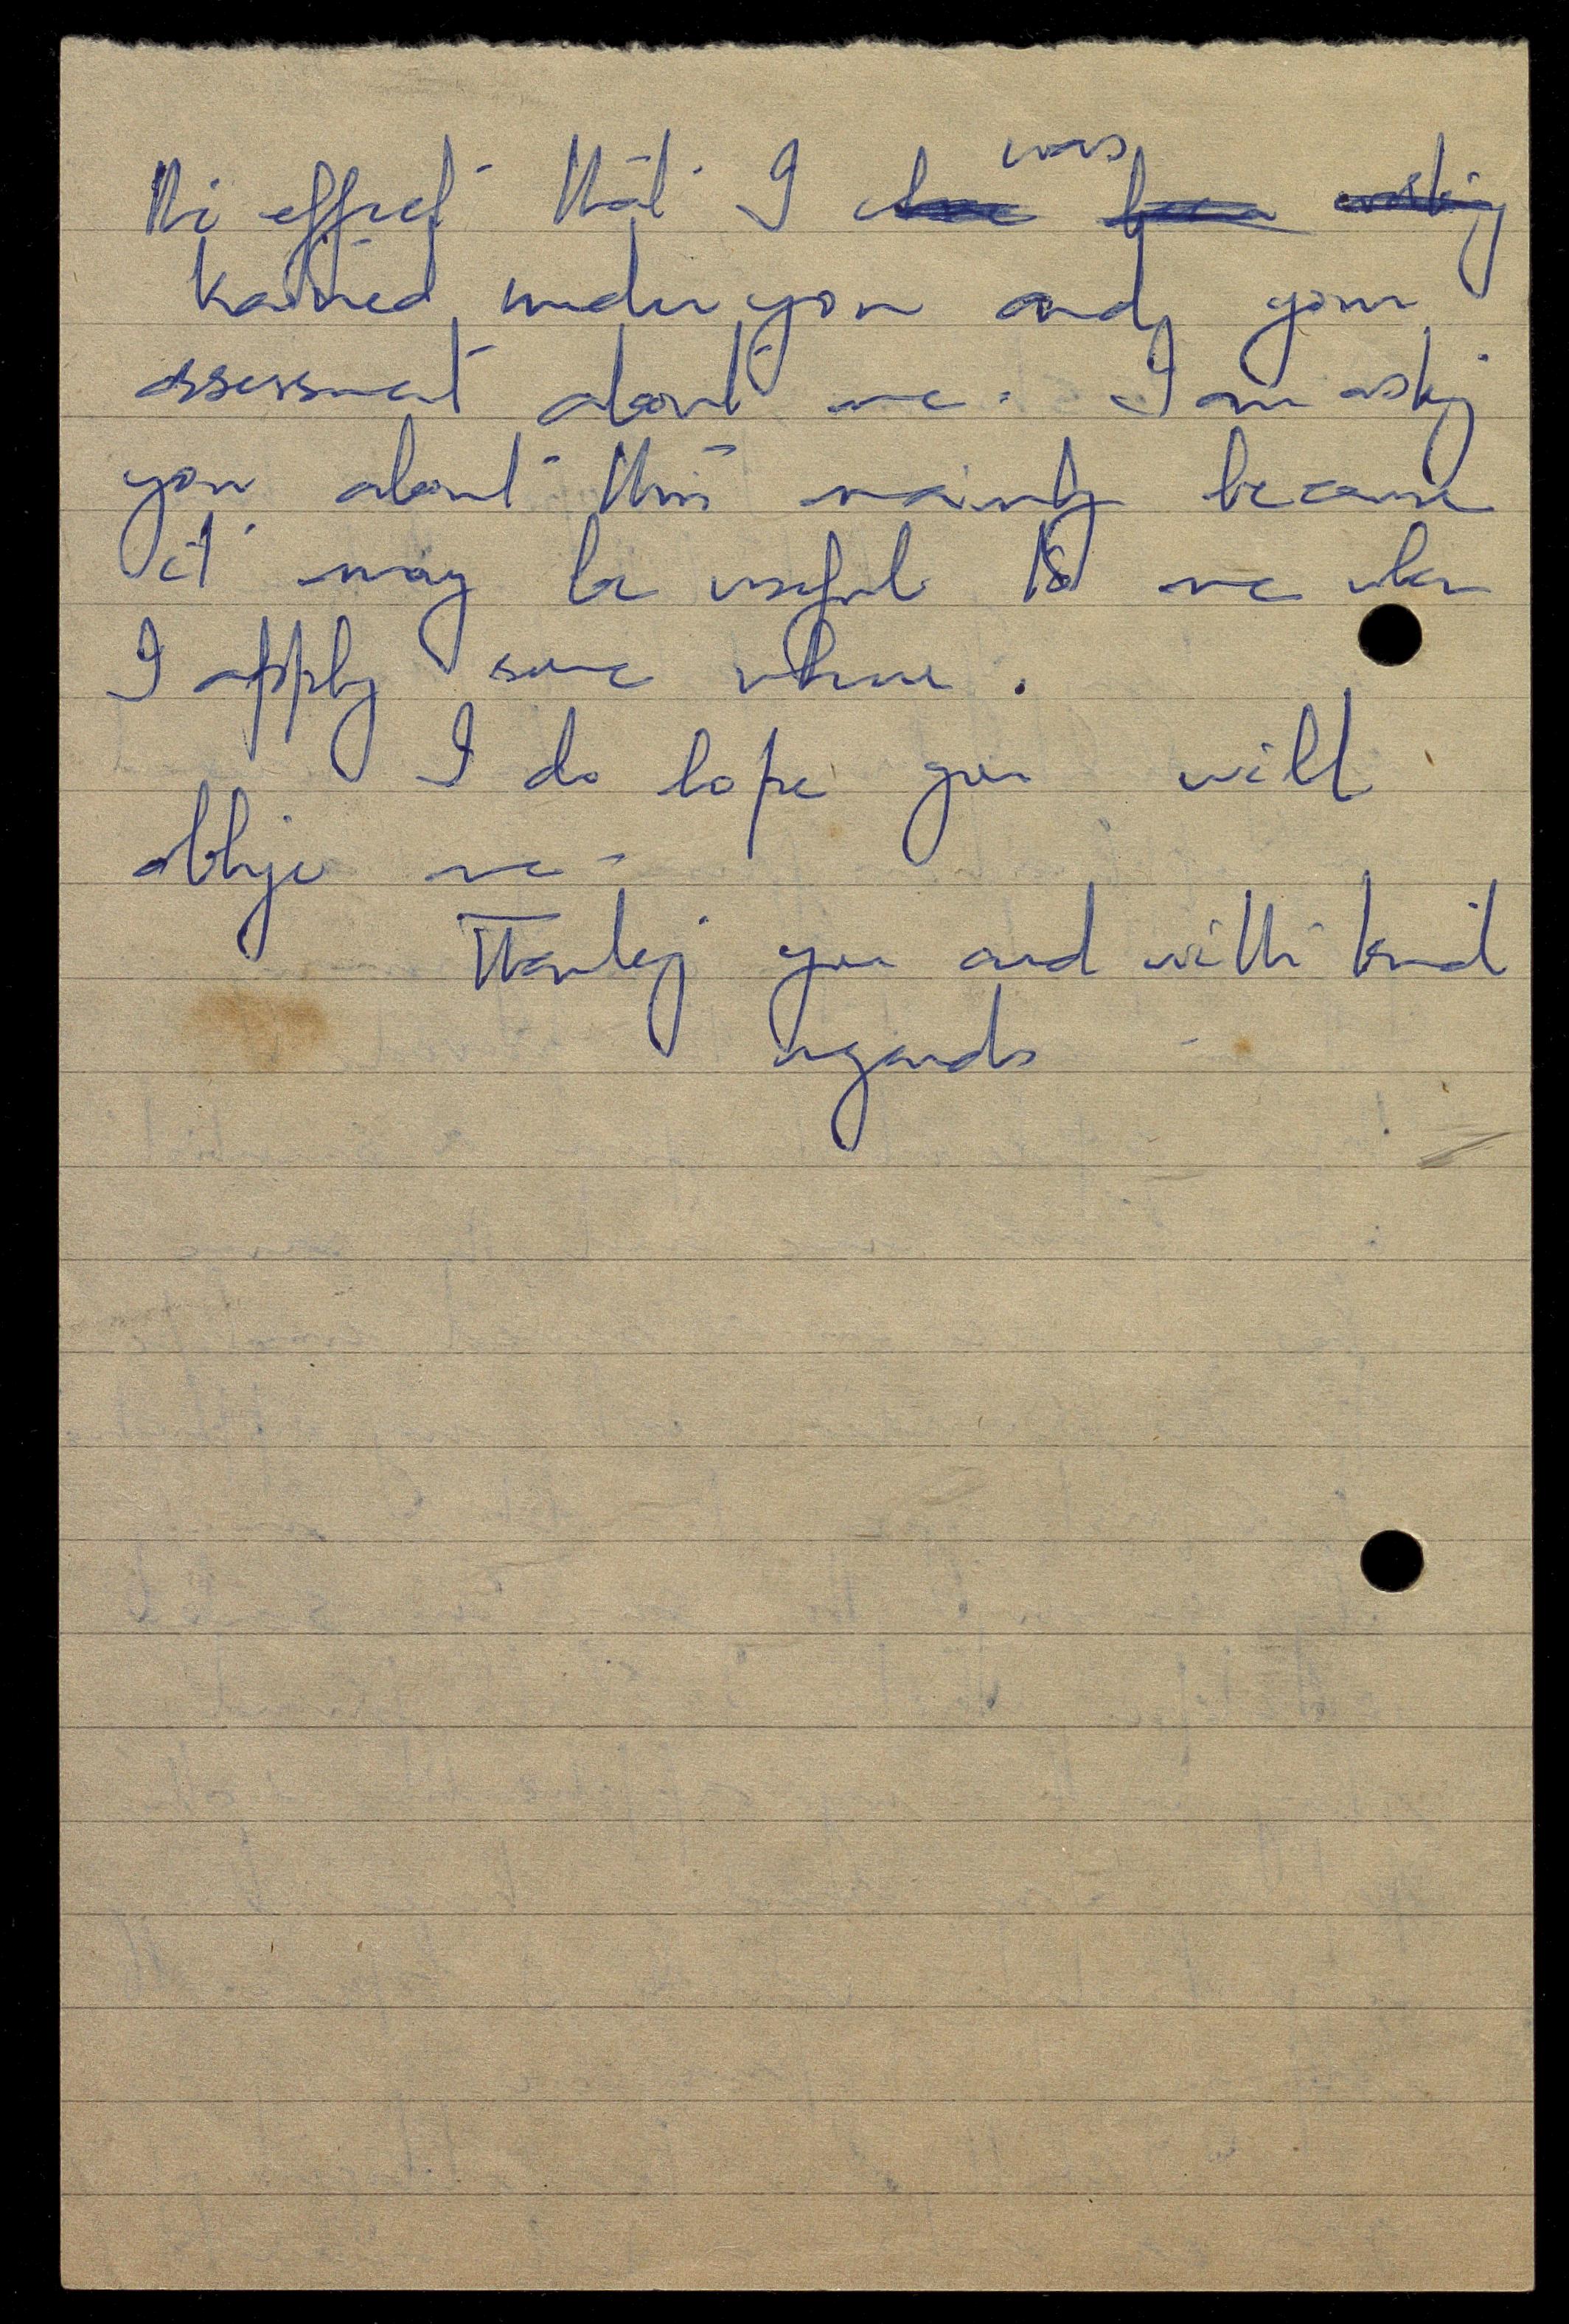 the effect that I was ~~have~~ ~~been~~ ~~working~~
trained under you and your
assessment about me. I am asking
you about this mainly because
it may be useful to me when
I apply some where.
I do hope you will
oblige me -
Thanking you and with kind
regards -